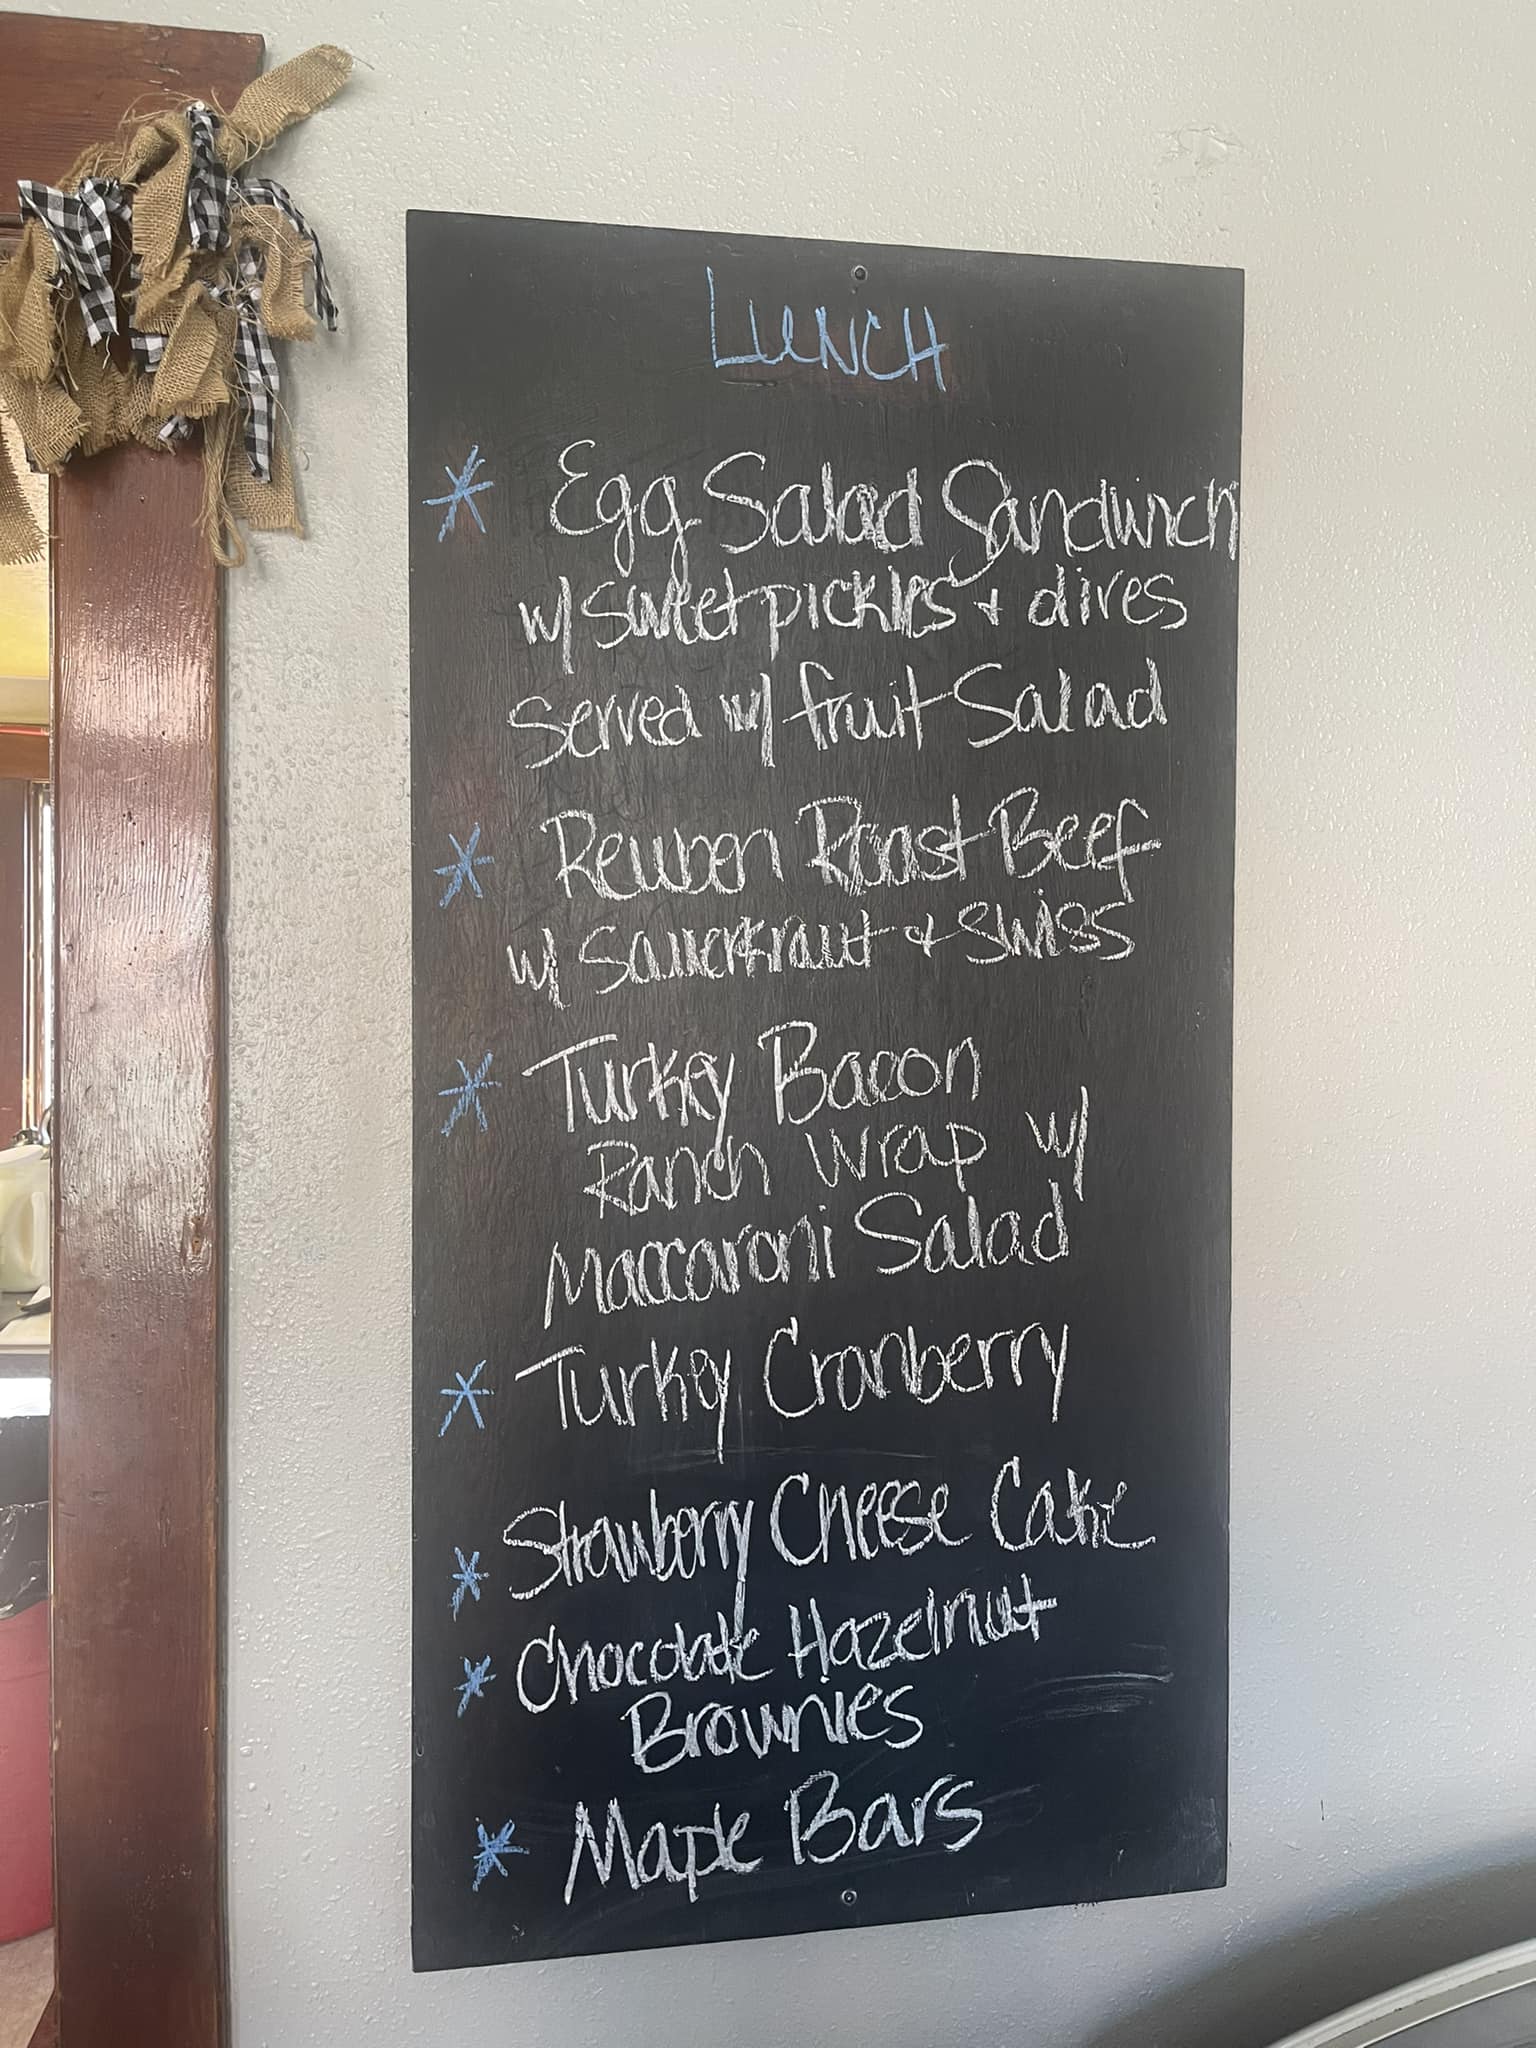 LUNCH
* Egg Salad Sandwich
w/ sweet pickles + olives
served w/ fruit Salad
* Reuben Roast Beef
w/ Sauerkraut + Swiss
* Turkey Bacon
Ranch Wrap w/
Maccaroni Salad
* Turkey Cranberry
* Strawberry Cheese Cake
* Chocolate Hazelnut
Brownies
* Maple Bars